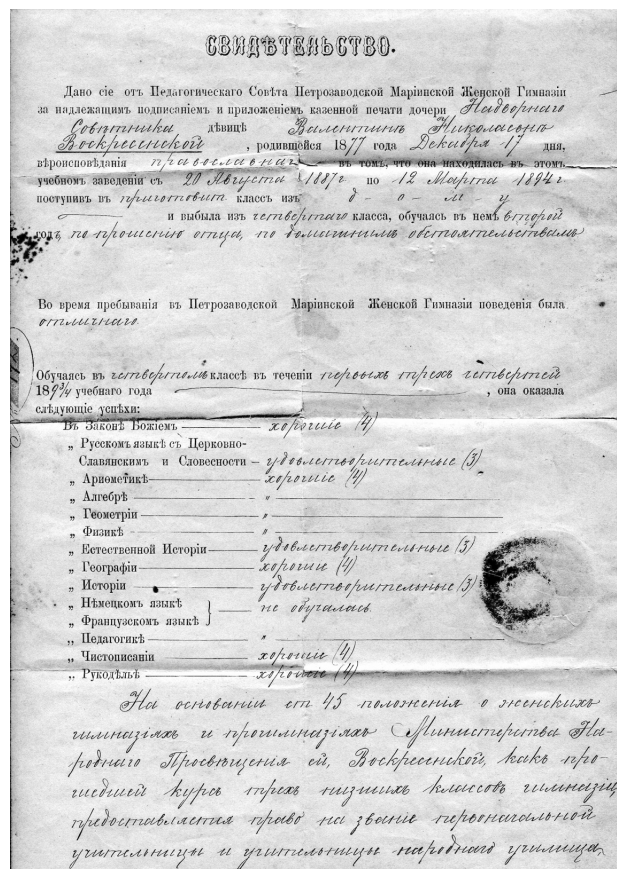 СВИДѢТЕЛЬСТВО.
Дано сіе отъ Педагогическаго Совѣта Петрозаводской Маріинской Женской Гимназіи
за надлежащимъ подписаніемъ и приложеніемъ казенной печати дочери Надворнаго
Совѣтника дѣвицѣ Валентинѣ Николаевнѣ
Воскресенской, родившейся 1877 года Декабря 17 дня,
вѣроисповѣданія православнаго въ томъ, что она находилась въ этомъ
учебномъ заведеніи съ 20 Августа 1887 г по 12 Марта 1894 г
поступивъ въ приготовит классъ изъ д-о-м-у
и выбыла изъ четвертаго класса, обучаясь въ немъ второй
годъ, по прошенію отца, по домашнимъ обстоятельствамъ
Во время пребыванія въ Петрозаводской Маріинской Женской Гимназіи поведенія была
отличнаго
Обучаясь въ четвертомъ классѣ въ теченіи первыхъ трехъ четвертей
189 3/4 учебнаго года , она оказала
слѣдующіе успѣхи:
Въ Законѣ Божіемъ — хорошіе (4)
„ Русскомъ языкѣ съ Церковно-
Славянскимъ и Словесности — удовлетворительные (3)
„ Ариѳметикѣ — хорошіе (4)
„ Алгебрѣ — „ —
„ Геометріи — „ —
„ Физикѣ — „ —
„ Естественной Исторіи — удовлетворительные (3)
„ Географіи — хорошіе (4)
„ Исторіи — удовлетворительные (3)
„ Нѣмецкомъ языкѣ } — не обучалась
„ Французскомъ языкѣ
„ Педагогикѣ — „ —
„ Чистописаніи — хорошіе (4)
„ Рукодѣльѣ — хорошіе (4)
На основаніи ст 45 положенія о женскихъ
гимназіяхъ и прогимназіяхъ Министерства На-
роднаго Просвѣщенія ей, Воскресенской, какъ про-
шедшей курсъ трехъ низшихъ классовъ гимназіи,
предоставляется право на званіе первоначальной
учительницы и учительницы народнаго училища,